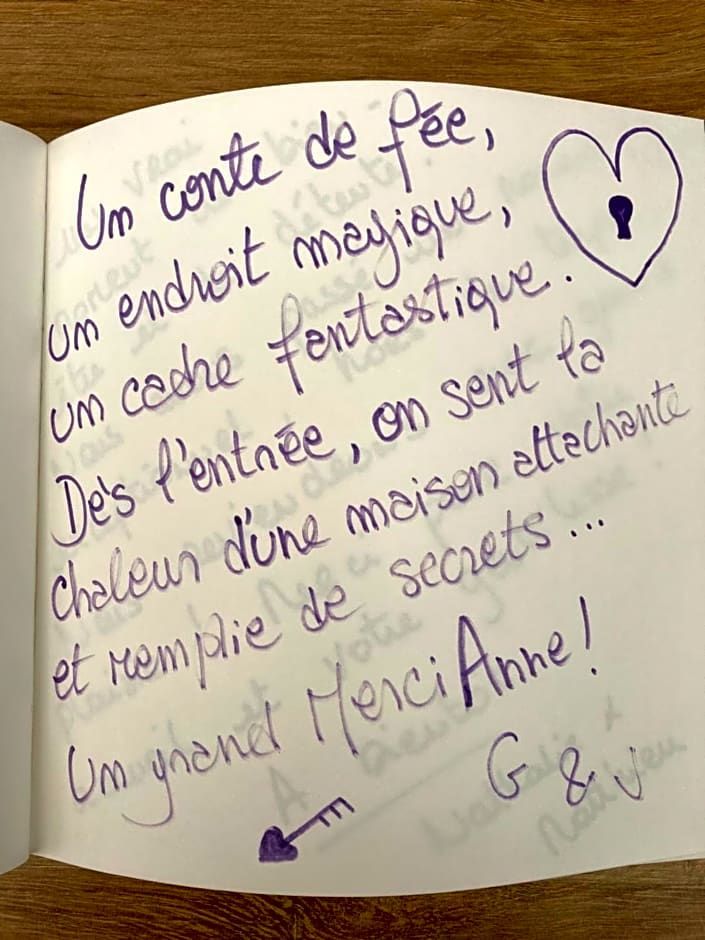 Un conte de fée,
un endroit magique,
un cadre fantastique.
Dès l'entrée, on sent la
chaleur d'une maison attachante
et remplie de secrets...
Un grand Merci Anne !
G & J